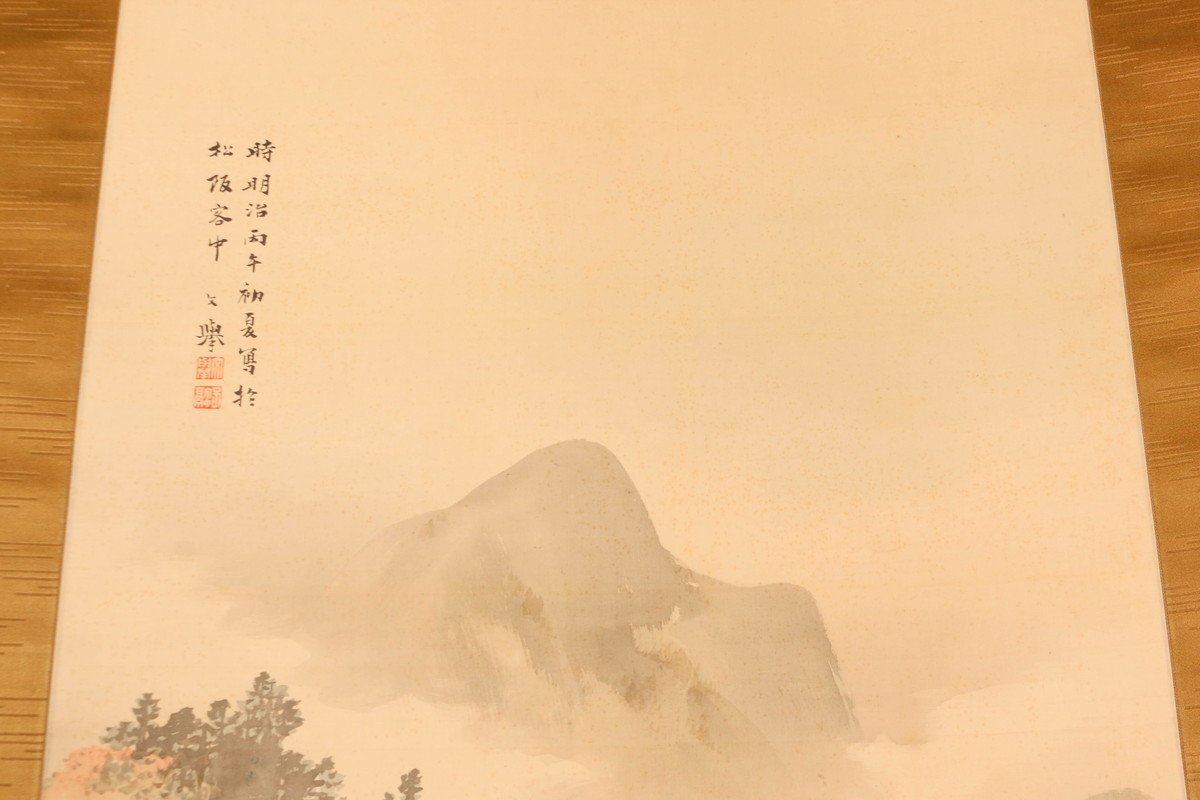 時明治丙午初夏写於
松阪客中 文擧